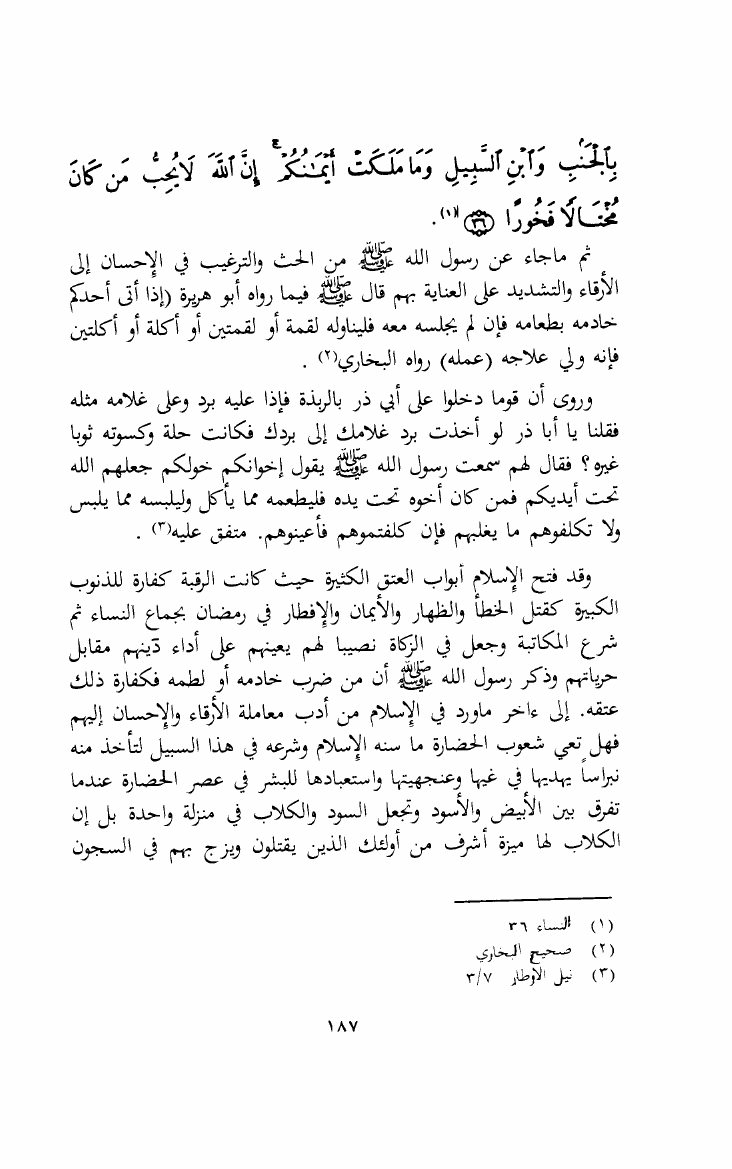 بِالْجَنْبِ وَابْنِ السَّبِيلِ وَمَا مَلَكَتْ أَيْمَانُكُمْ إِنَّ اللَّهَ لَا يُحِبُّ مَن كَانَ
مُخْتَالًا فَخُورًا ﴿٣٦﴾ (١).
ثم ماجاء عن رسول الله ﷺ من الحث والترغيب في الإحسان إلى
الأرقاء والتشديد على العناية بهم قال ﷺ فيما رواه أبو هريرة (إذا أتى أحدكم
خادمه بطعامه فإن لم يجلسه معه فليناوله لقمة أو لقمتين أو أكلة أو أكلتين
فإنه ولي علاجه (عمله) رواه البخاري(٢) .
وروى أن قوما دخلوا على أبي ذر بالربذة فإذا عليه برد وعلى غلامه مثله
فقلنا يا أبا ذر لو أخذت برد غلامك إلى بردك فكانت حلة وكسوته ثوبا
غيره؟ فقال لهم سمعت رسول الله ﷺ يقول إخوانكم خولكم جعلهم الله
تحت أيديكم فمن كان أخوه تحت يده فليطعمه مما يأكل وليلبسه مما يلبس
ولا تكلفوهم ما يغلبهم فإن كلفتموهم فأعينوهم. متفق عليه(٣) .
وقد فتح الإسلام أبواب العتق الكثيرة حيث كانت الرقبة كفارة للذنوب
الكبيرة كقتل الخطأ والظهار والأيمان والإفطار في رمضان بجماع النساء ثم
شرع المكاتبة وجعل في الزكاة نصيبا لهم يعينهم على أداء دَينهم مقابل
حرياتهم وذكر رسول الله ﷺ أن من ضرب خادمه أو لطمه فكفارة ذلك
عتقه. إلى ءاخر ماورد في الإسلام من أدب معاملة الأرقاء والإحسان إليهم
فهل تعي شعوب الحضارة ما سنه الإسلام وشرعه في هذا السبيل لتأخذ منه
نبراساً يهديها في غيها وعنجهيتها واستعبادها للبشر في عصر الحضارة عندما
تفرق بين الأبيض والأسود وتجعل السود والكلاب في منزلة واحدة بل إن
الكلاب لها ميزة أشرف من أولئك الذين يقتلون ويزج بهم في السجون
(١) النساء ٣٦
(٢) صحيح البخاري
(٣) نيل الأوطار ٣/٧
١٨٧